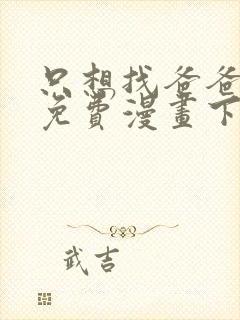 只想找爸爸
免費漫畫下
武吉